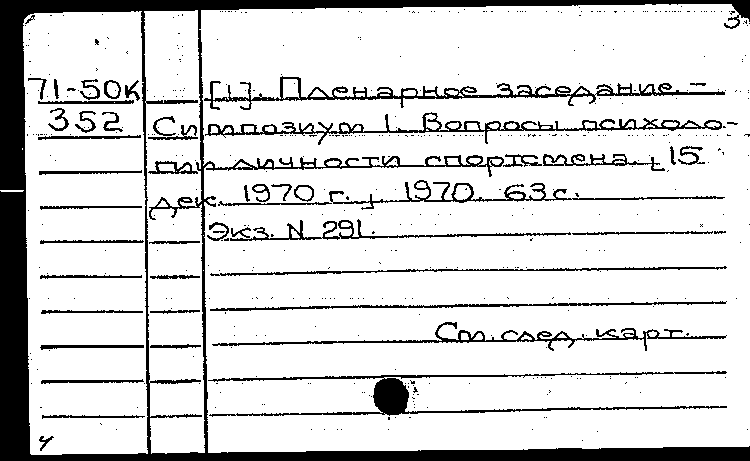 3
71-50к [1]. Пленарное заседание. –
352 Симпозиум 1. Вопросы психоло-
гии личности спортсмена. [15
дек. 1970 г.] 1970. 63 с.
Экз. N 291.
См. след. карт.
4